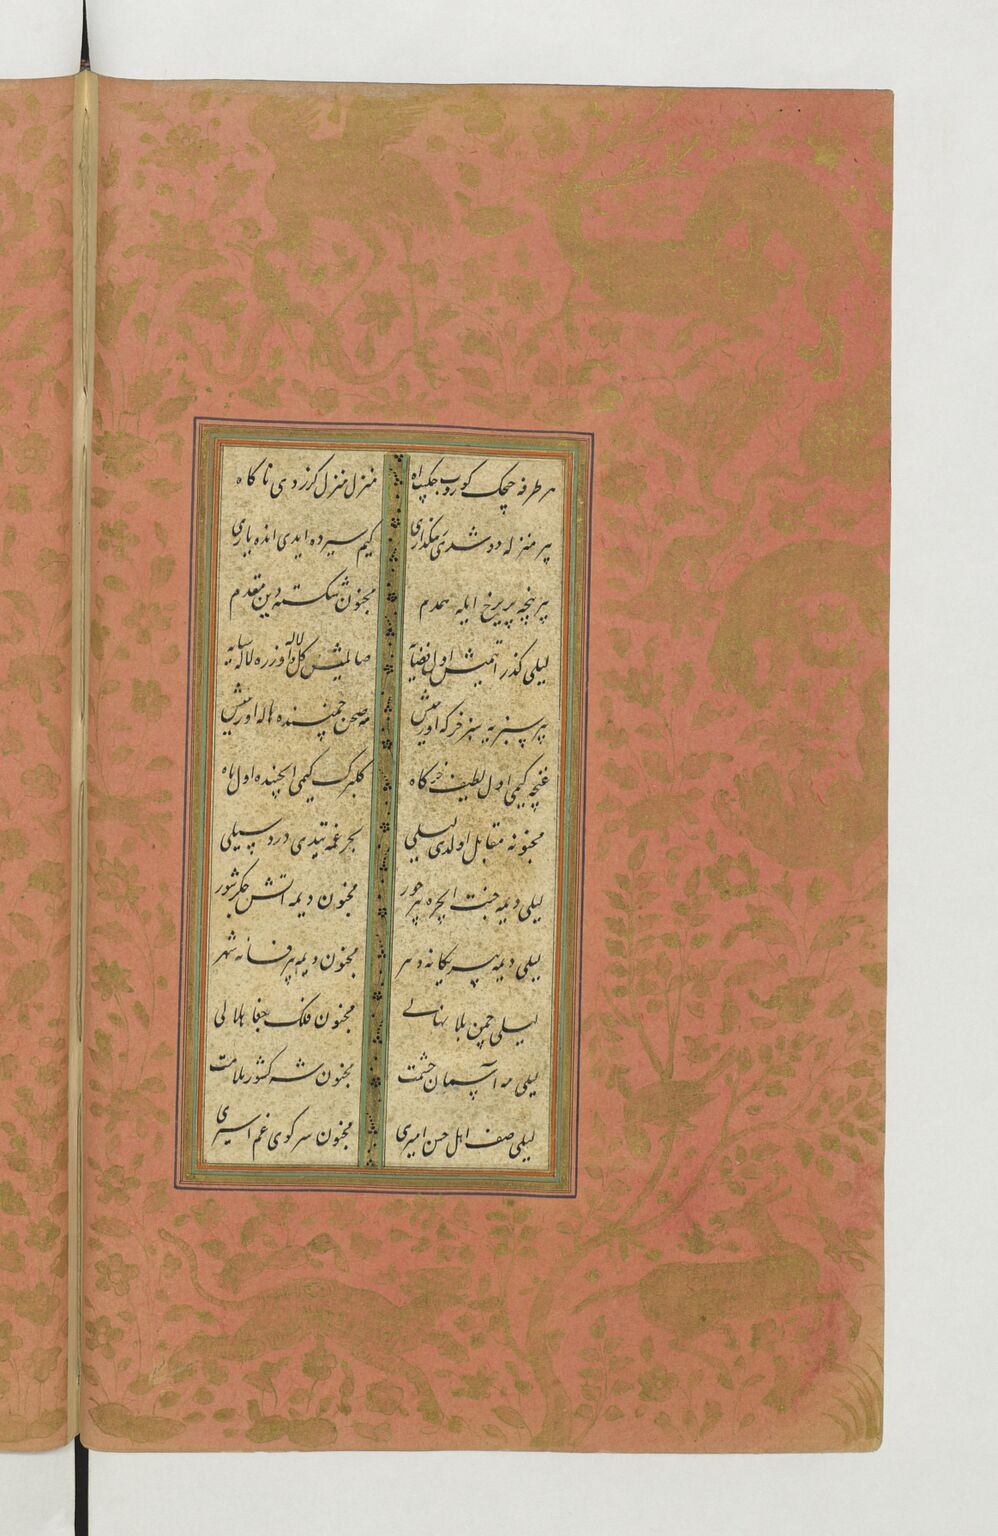 هر طرفه چچک کوروب چکیب آه منزل منزل کزردی ناکاه
بیر منزله دوشدی رهکذاری کیم سیرده ایدی انده یاری
بیر نیچه پریرخ ایله همدم مجنون شکسته دین مقدم
لیلی کذر اتمیش اول فضایه صالمیش کل و لاله اوزره سایه
بیر سبزیه سبز خرکه اورمیش مه صحن چمنده هاله اورمیش
غنچه کیمی اول لطیف خرکاه کلبرک کیمی ایچنده اول ماه
مجنونه مقابل اولدی لیلی بحر غمه یتدی درد سیلی
لیلی دیمه جنت ایچره بیر حور مجنون دیمه آتش جکرشور
لیلی دیمه بیر یکانه دهر مجنون دیمه بیر فسانه شهر
لیلی چمن بلا نهالی مجنون فلک جفا هلالی
لیلی مه آسمان حشمت مجنون شه کشور ملامت
لیلی صف اهل حسن امیری مجنون سر کوی غم اسیری